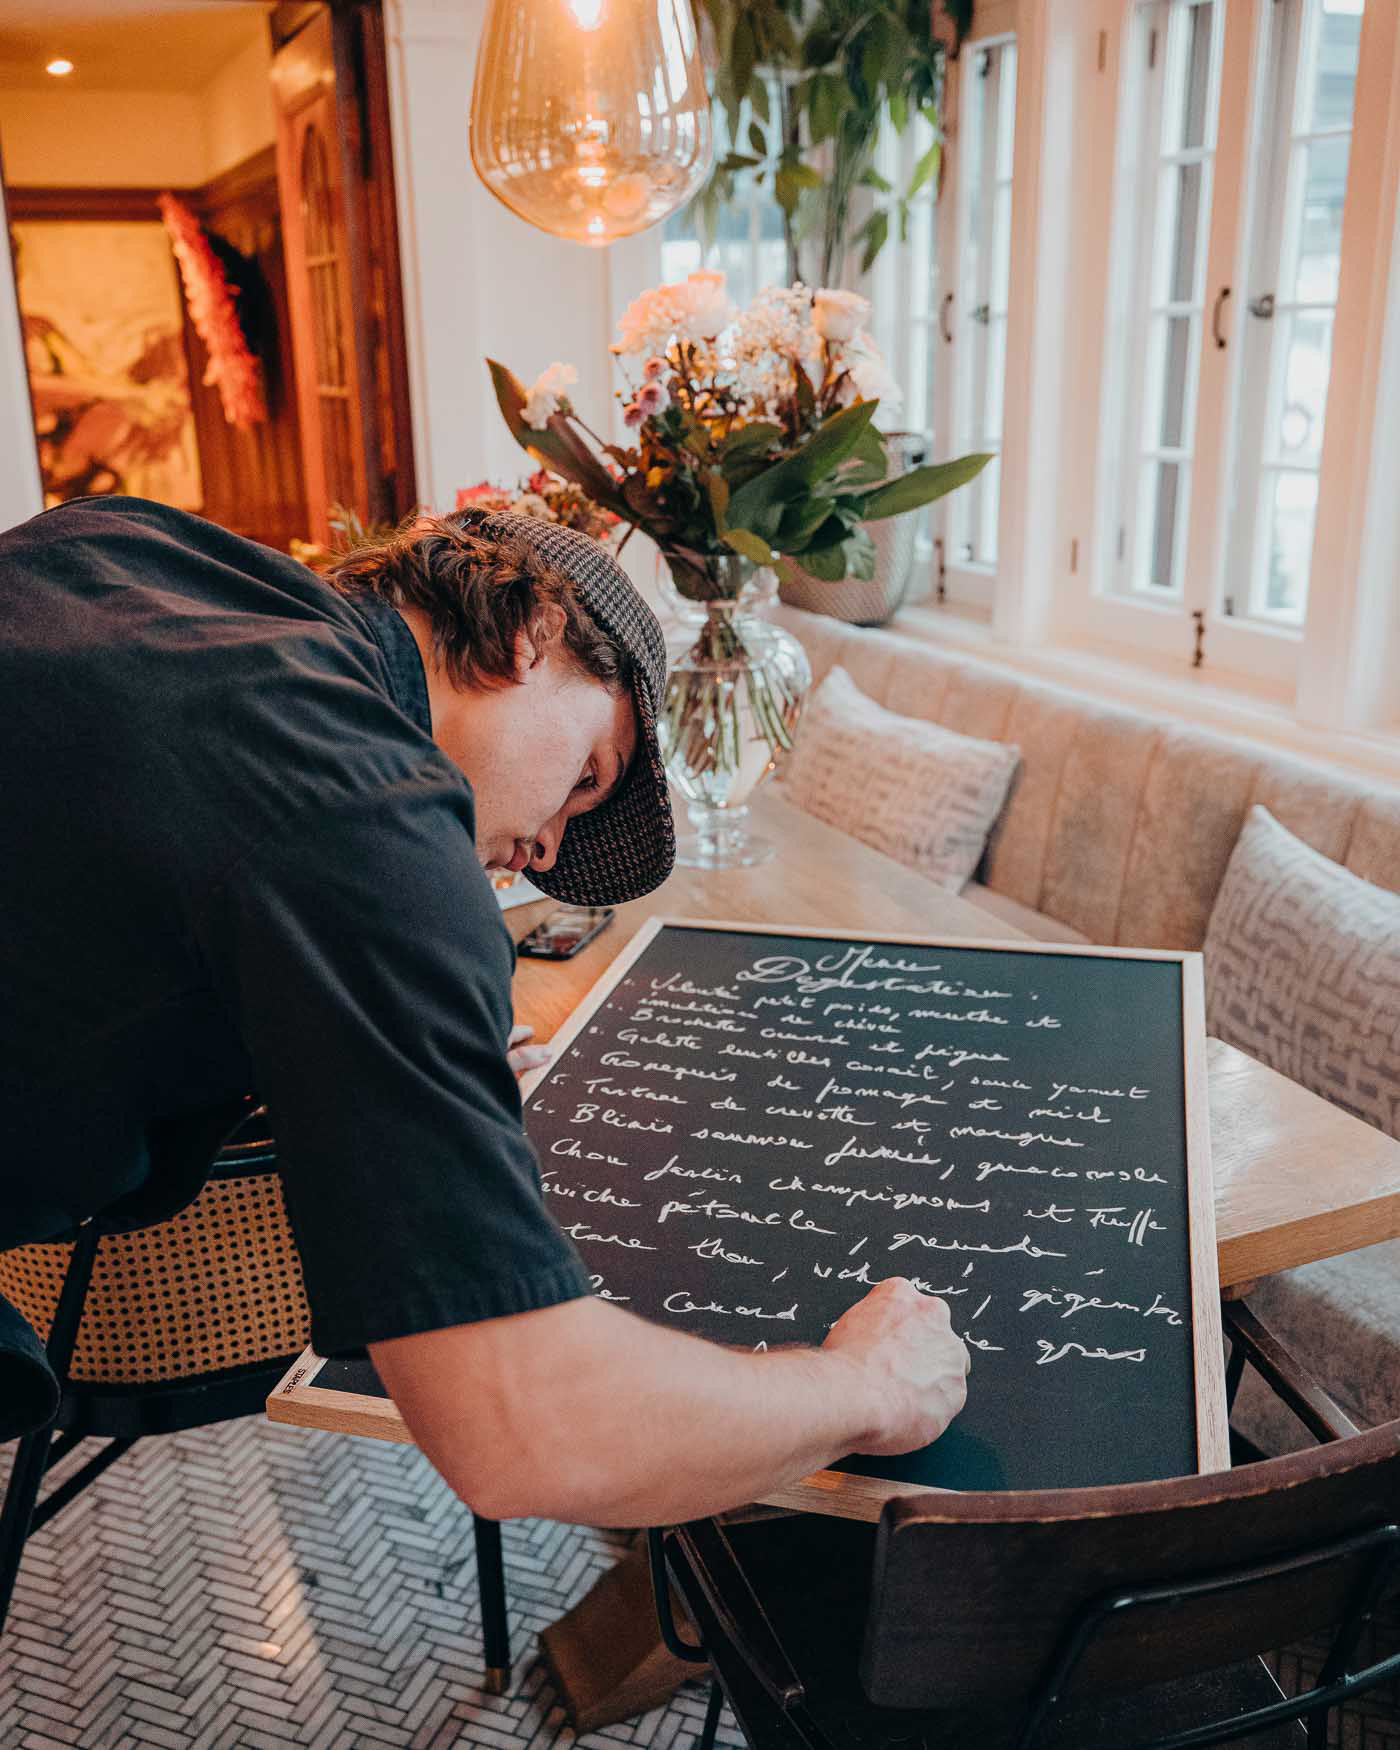 Menu
Dégustation :
1. Velouté petit pois, menthe et
émultion de chèvre
Brochettes canard et figue
3. Galette lentilles corail, sauce yaourt
4. Cromesquis de fromage et miel
5. Tartare de crevette et mangue
6. Blinis saumon fumé, guacamole
Chou farcis champignons et Truffe
viche pétoncle, grenade
tare thon, gigembre
canard gras
STAPLES